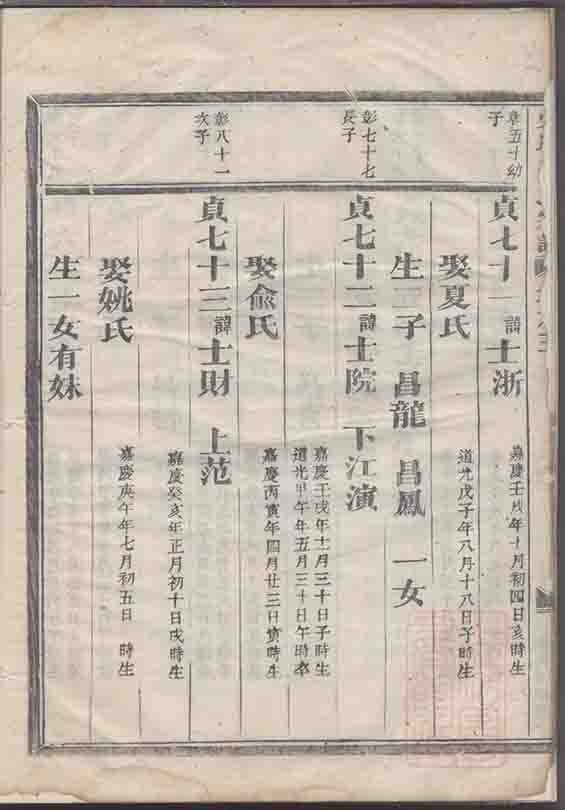 彰五十幼
子
貞七十一 諱 士浙
嘉慶壬戌年十月初四日亥時生
娶夏氏
道光戊子年八月十八日子時生
生子 昌龍 昌鳳 一女
彰七十七
長子
貞七十二 諱 士院 下江演
嘉慶壬戌年十一月三十日子時生
道光甲午年五月三十日午時卒
娶俞氏
嘉慶丙寅年四月廿三日寅時生
彰八十一
次子
貞七十三 諱 士財 上范
嘉慶癸亥年正月初十日戌時生
娶姚氏
嘉慶庚午年七月初五日 時生
生一女有妹